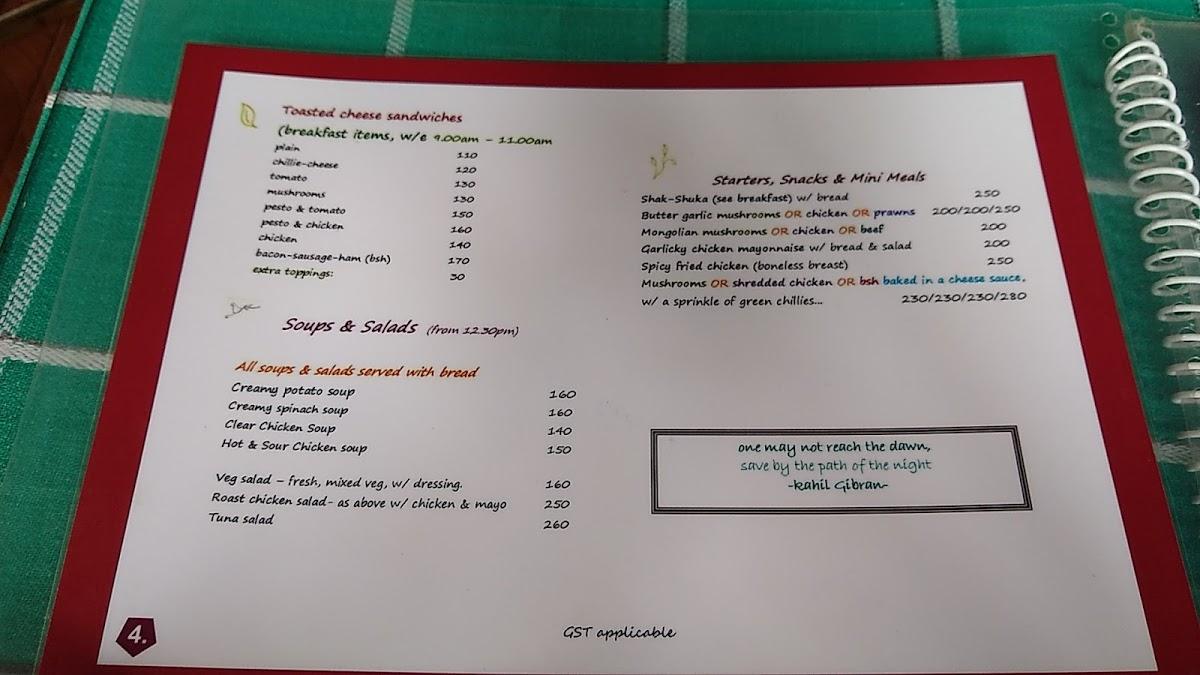 Toasted cheese sandwiches
(breakfast items, w/e 9.00am - 11.00am
plain 110
chillie-cheese 120
tomato 130
mushrooms 130
pesto & tomato 150
pesto & chicken 160
chicken 140
bacon-sausage-ham (bsh) 170
extra toppings: 30
Soups & Salads (from 12.30pm)
All soups & salads served with bread
Creamy potato soup 160
Creamy spinach soup 160
Clear Chicken Soup 140
Hot & Sour Chicken soup 150
Veg salad – fresh, mixed veg, w/ dressing. 160
Roast chicken salad- as above w/ chicken & mayo 250
Tuna salad 260
Starters, Snacks & Mini Meals
Shak-Shuka (see breakfast) w/ bread 250
Butter garlic mushrooms OR chicken OR prawns 200/200/250
Mongolian mushrooms OR chicken OR beef 200
Garlicky chicken mayonnaise w/ bread & salad 200
Spicy fried chicken (boneless breast) 250
Mushrooms OR shredded chicken OR bsh baked in a cheese sauce,
w/ a sprinkle of green chillies... 230/230/230/280
one may not reach the dawn,
save by the path of the night
-kahil Gibran-
GST applicable
4.